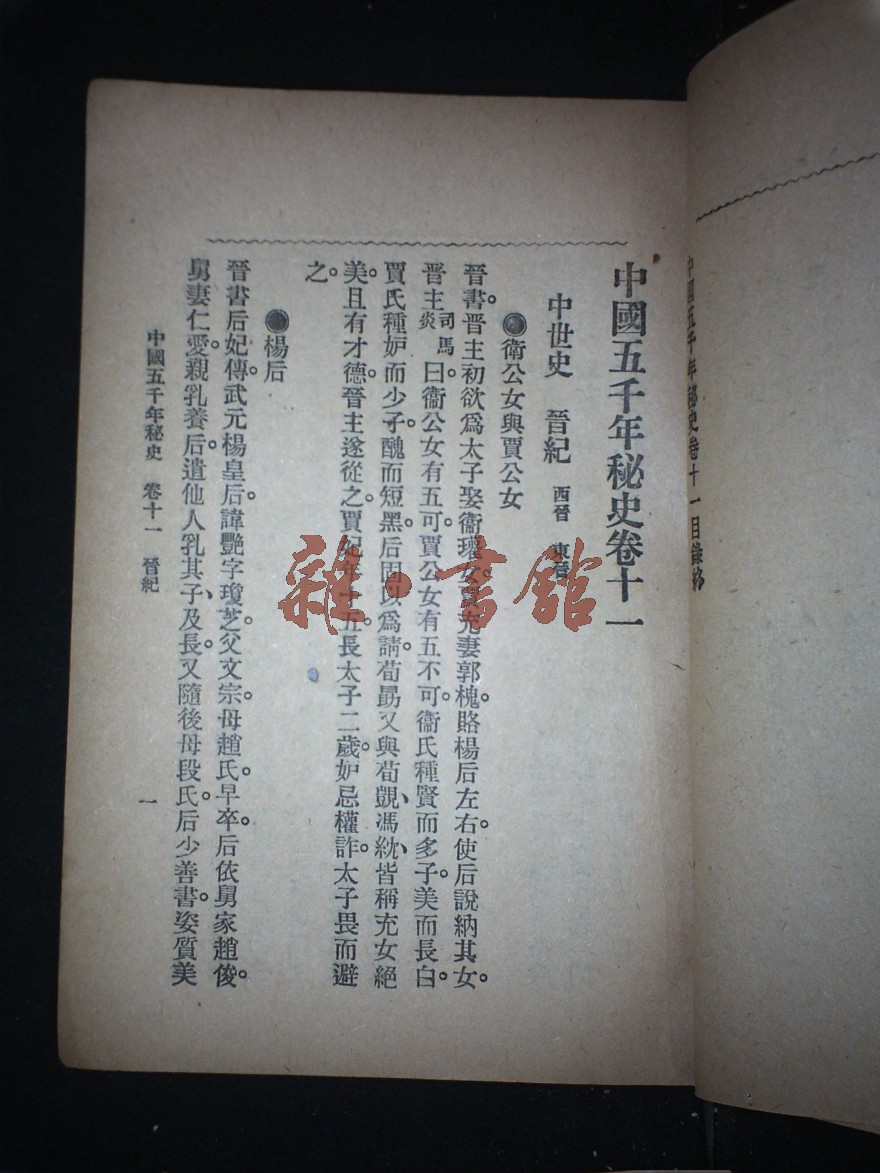 中國五千年秘史卷十一目錄終
中國五千年秘史卷十一
中世史　晉紀　西晉　東晉
●衛公女與賈公女
晉書。晉主初欲爲太子娶衞瓘女。賈充妻郭槐賂楊后左右。使后說納其女。
晉主司馬炎。曰衞公女有五可。賈公女有五不可。衞氏種賢而多子。美而長白。
賈氏種妒而少子。醜而短黑。后固以爲請。荀勗又與荀覬、馮紞、皆稱充女絕
美。且有才德。晉主遂從之。賈妃年十五。長太子二歲。妒忌權詐。太子畏而避
之。
●楊后
晉書后妃傳。武元楊皇后。諱艷字瓊芝。父文宗。母趙氏。早卒。后依舅家趙俊。
舅妻仁愛。親乳養后。遣他人乳其子、及長。又隨後母段氏。后少善書。姿質美
中國五千年秘史　卷十一　晉紀　一
雜·書館